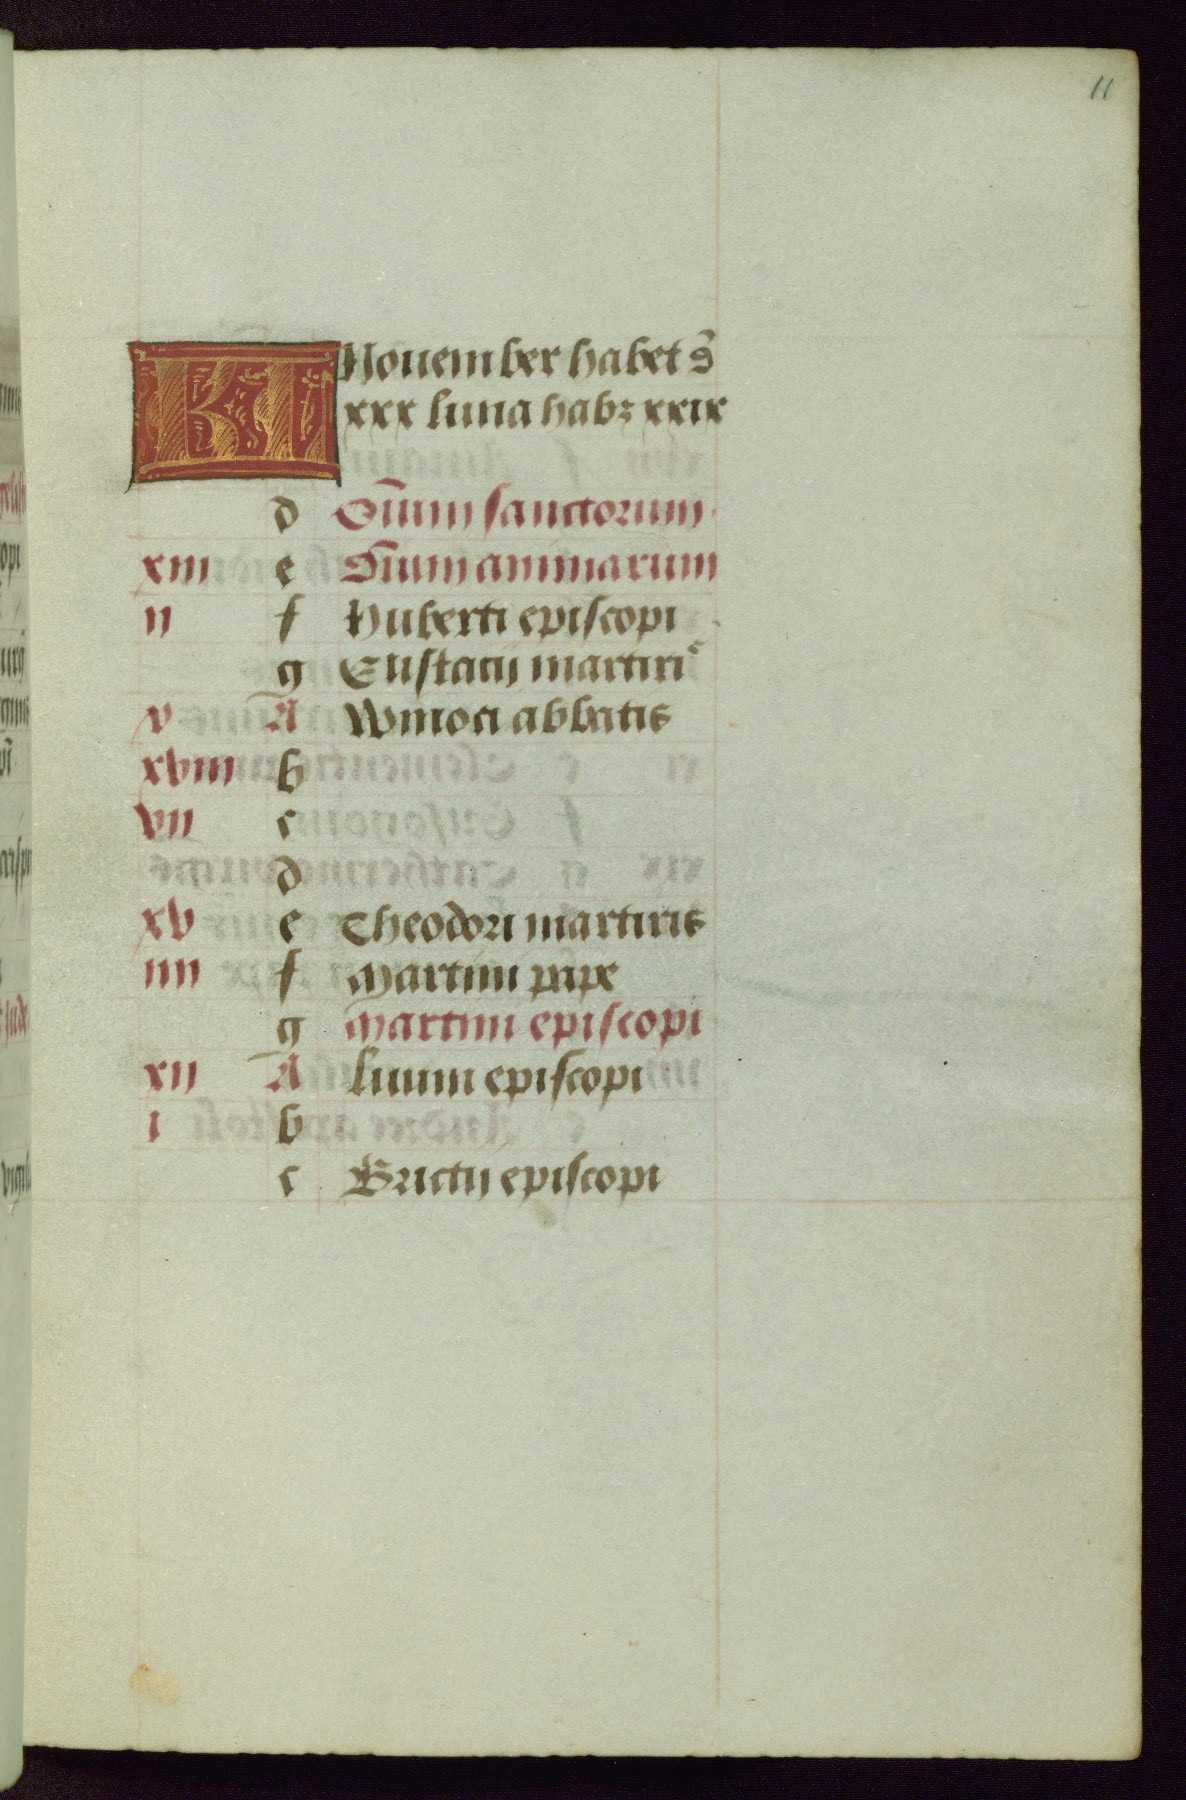 11
KL Nouember habet s̃
xxx luna habꝫ xxix
d Om̃ium sanctorum
xiii e Om̃ium animarum
ii f Huberti episcopi
g Eustacij martiris
v A Winoci abbatis
xviii b
vii c
d
xv e Theodori martiris
iiii f Martini pape
g Martini episcopi
xii A Liuini episcopi
i b
c Brictij episcopi